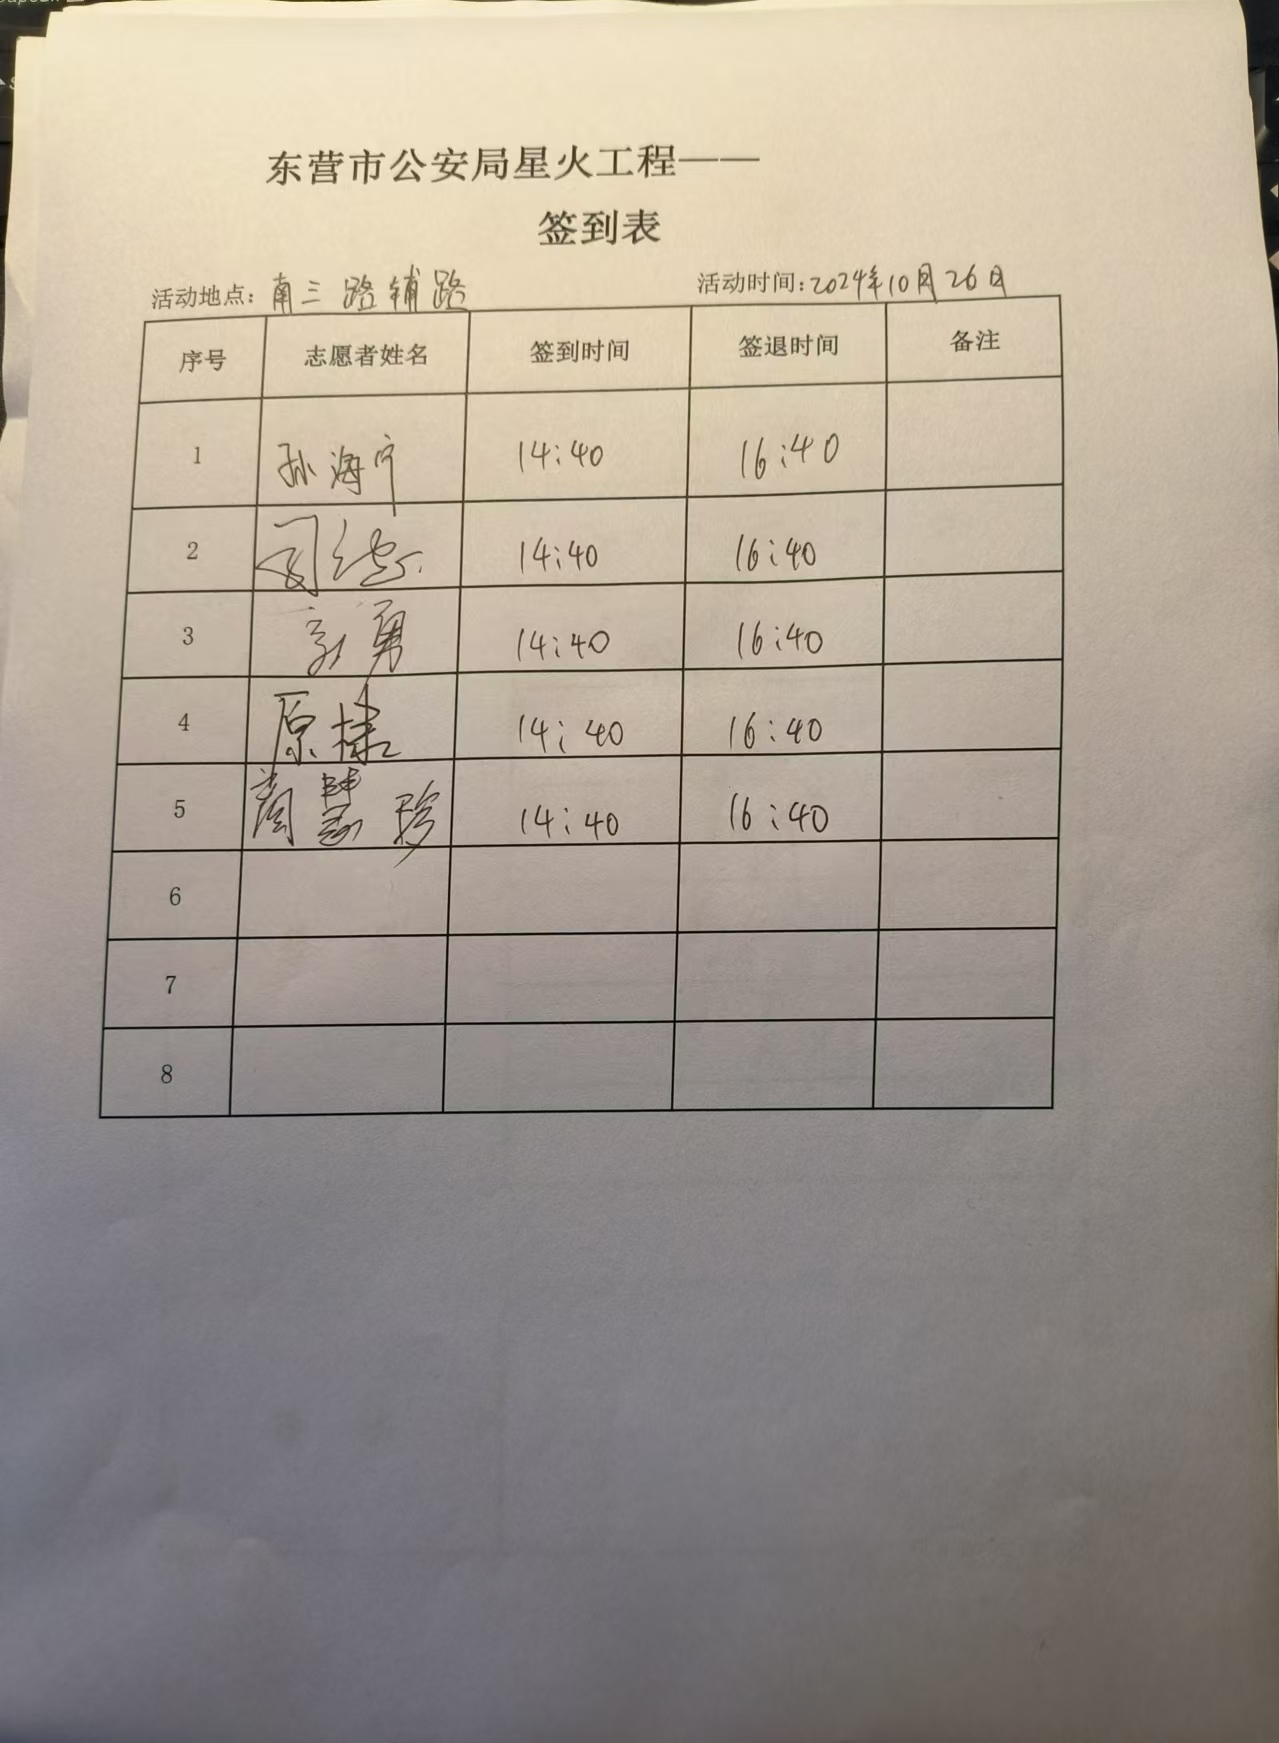 东营市公安局星火工程——
签到表
活动地点：南三路辅路 活动时间：2024年10月26日
序号 志愿者姓名 签到时间 签退时间 备注
1 孙海宁 14:40 16:40
2 14:40 16:40
3 勇 14:40 16:40
4 原棣 14:40 16:40
5 慧珍 14:40 16:40
6
7
8